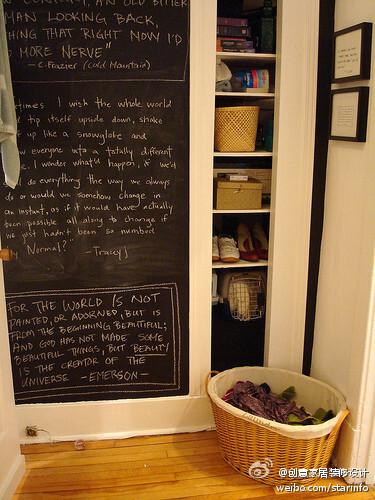 AN OLD BITTER
MAN LOOKING BACK,
THING THAT RIGHT NOW I'D
MORE NERVE"
-C. Frazier (Cold Mountain)
times I wish the whole world
tip itself upside down, shake
up like a snowglobe and
everyone into a totally different
I wonder what'd happen, if we'd
do everything the way we always
do or would we somehow change in
an instant, as if it would have actually
been possible all along to change if
we just hadn't been so numbed
Normal?" -Tracey J
FOR THE WORLD IS NOT
PAINTED, OR ADORNED, BUT IS
FROM THE BEGINNING BEAUTIFUL;
AND GOD HAS NOT MADE SOME
BEAUTIFUL THINGS, BUT BEAUTY
IS THE CREATOR OF THE
UNIVERSE -EMERSON-
@创意家居装修设计
weibo.com/starinfo